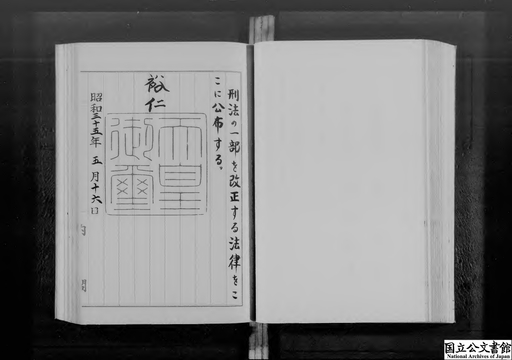 刑法の一部を改正する法律をこ
こに公布する。
裕仁
天皇
御璽
昭和三十五年五月十六日
国立公文書館
National Archives of Japan